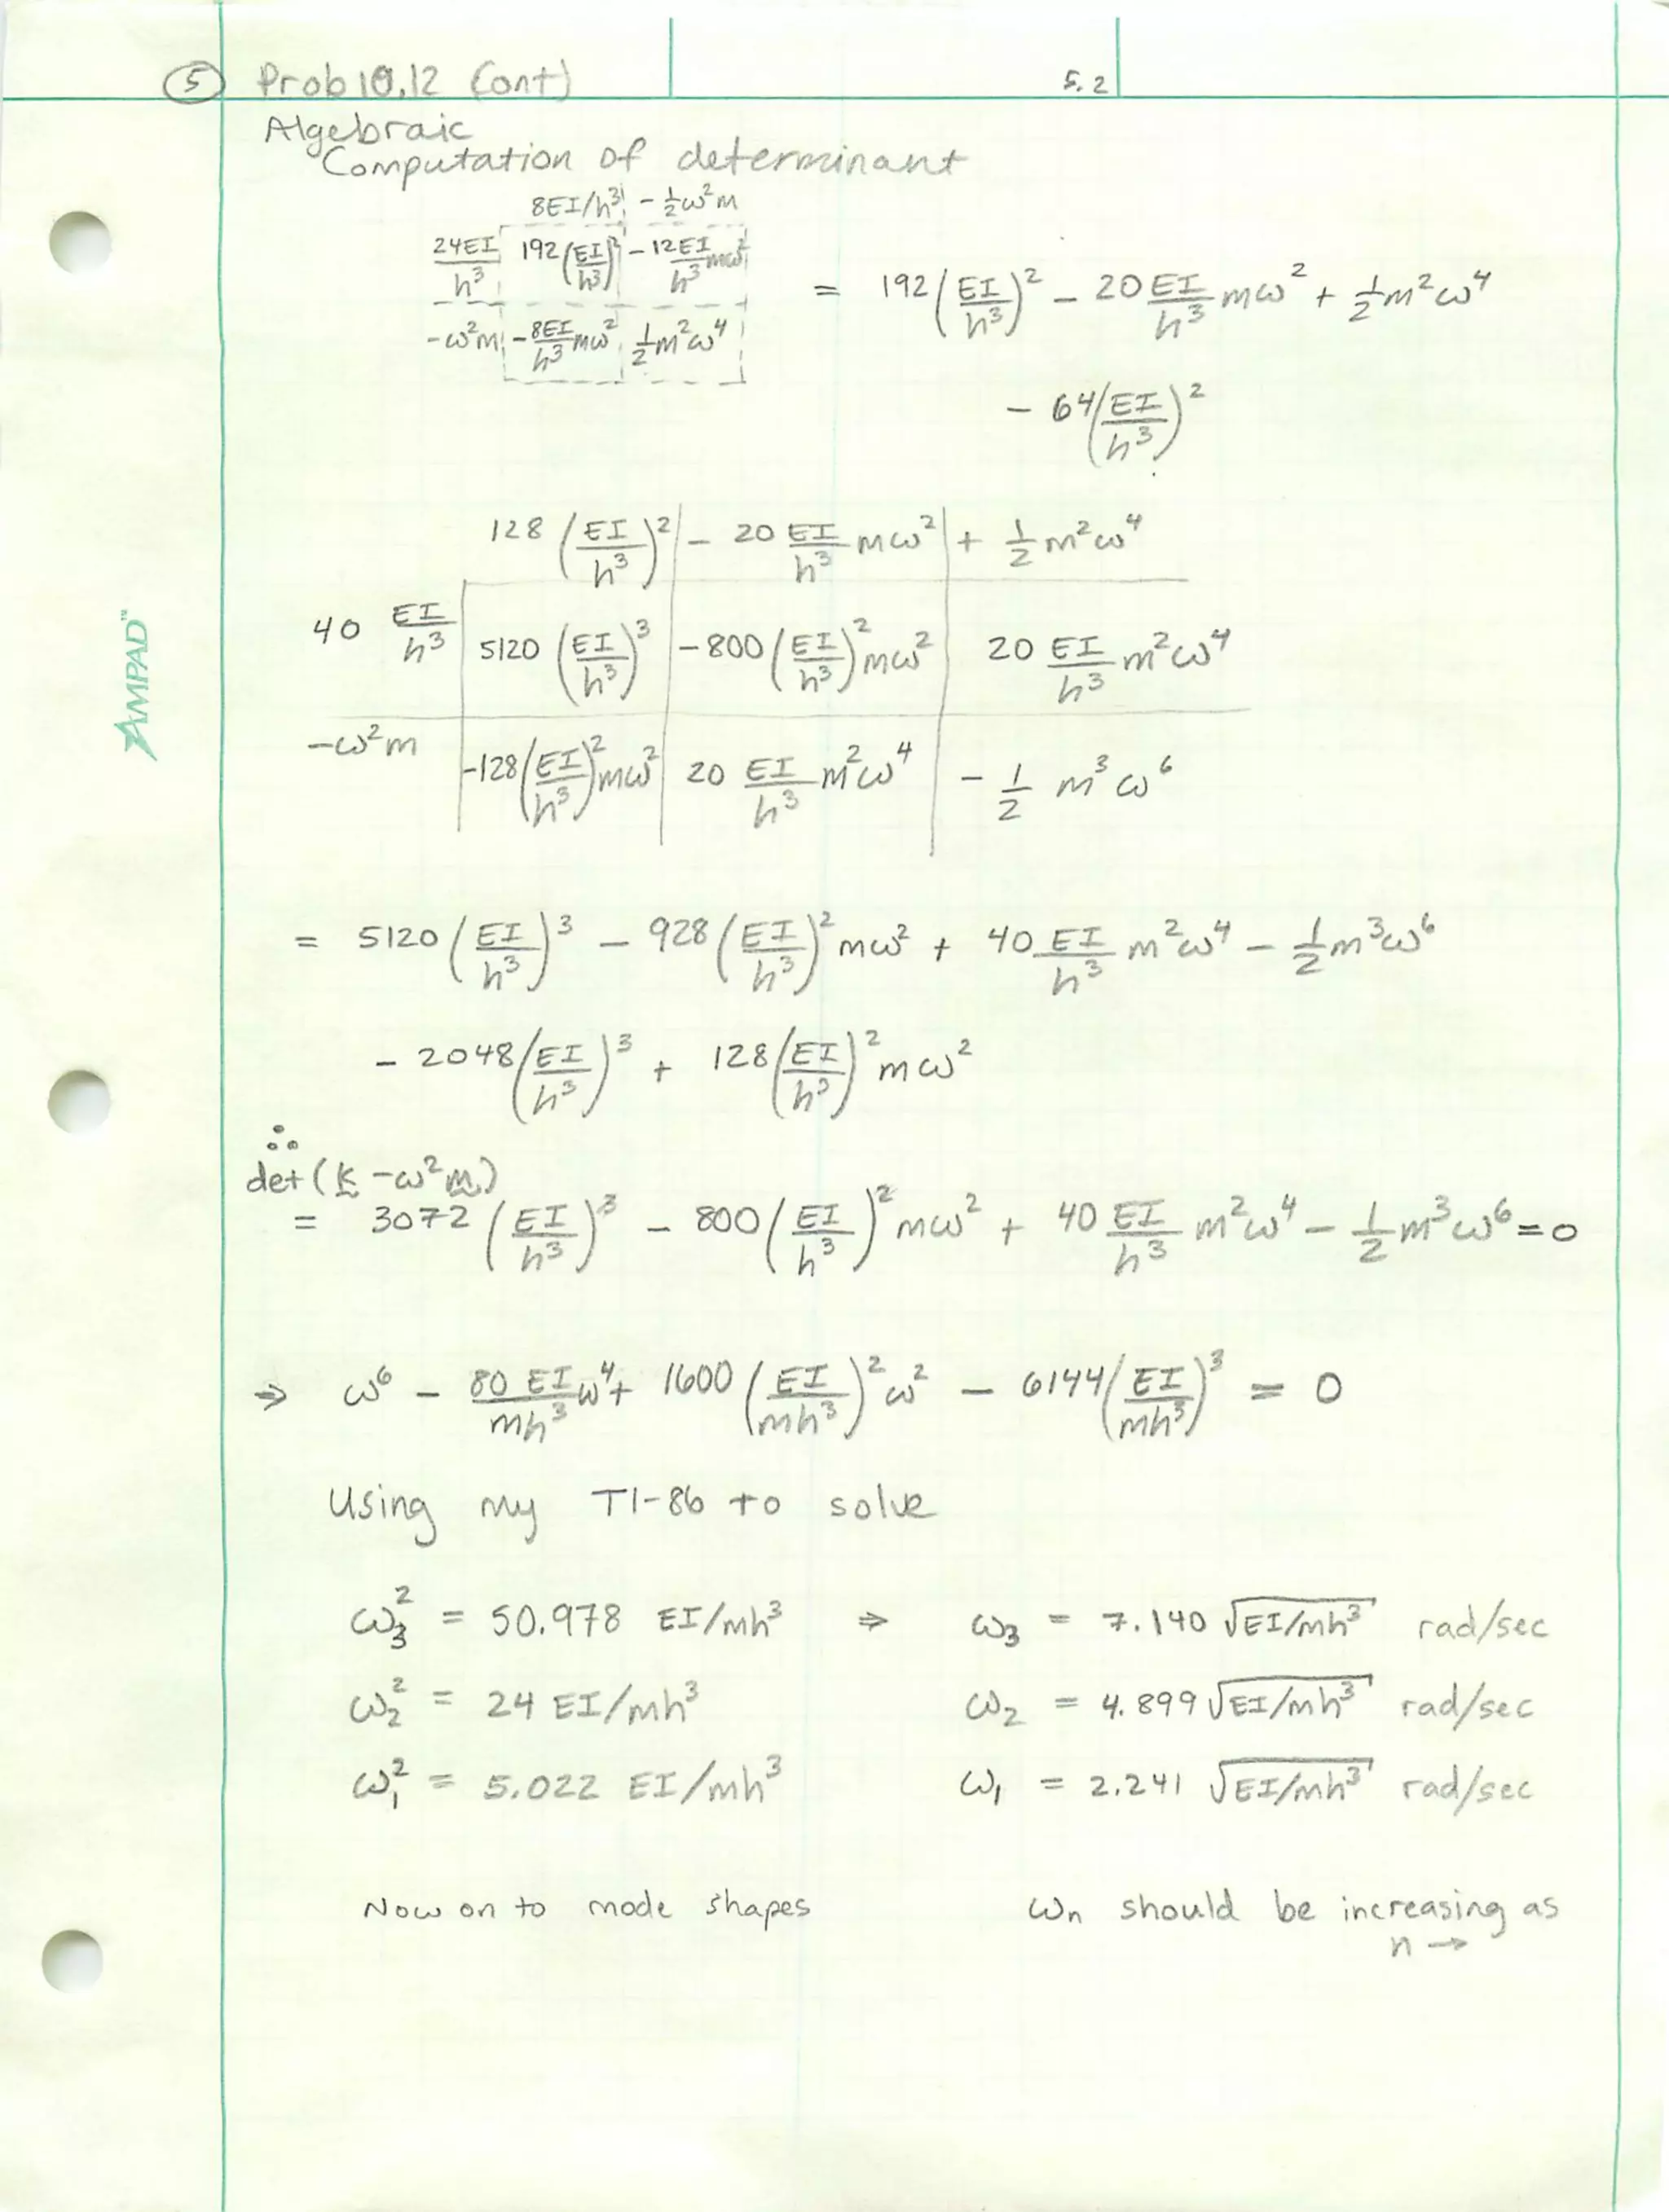 ⑤ Prob 10.12 (Cont) 5.2
Algebraic
Computation of determinant
8EI/h³ - ½ω²m
24EI/h³ 192(EI/h³)² -12EI/h³ mω²
-ω²m -8EI/h³ mω² ½m²ω⁴
= 192(EI/h³)² - 20 EI/h³ mω² + ½m²ω⁴
- 64(EI/h³)²
128 (EI/h³)² - 20 EI/h³ mω² + ½ m²ω⁴
40 EI/h³ 5120 (EI/h³)³ -800(EI/h³)² mω² 20 EI/h³ m²ω⁴
-ω²m -128(EI/h³)² mω² 20 EI/h³ m²ω⁴ - ½ m³ω⁶
= 5120(EI/h³)³ - 928(EI/h³)² mω² + 40 EI/h³ m²ω⁴ - ½m³ω⁶
- 2048(EI/h³)³ + 128(EI/h³)² mω²
∴
det(k - ω²m)
= 3072(EI/h³)³ - 800(EI/h³)² mω² + 40 EI/h³ m²ω⁴ - ½m³ω⁶ = 0
⇒ ω⁶ - 80 EI/mh³ ω⁴ + 1600(EI/mh³)² ω² - 6144(EI/mh³)³ = 0
Using my TI-86 to solve
ω₃² = 50.978 EI/mh³ ⇒ ω₃ = 7.140 √EI/mh³ rad/sec
ω₂² = 24 EI/mh³ ω₂ = 4.899 √EI/mh³ rad/sec
ω₁² = 5.022 EI/mh³ ω₁ = 2.241 √EI/mh³ rad/sec
Now on to mode shapes ωn should be increasing as
n →
AMPAD™